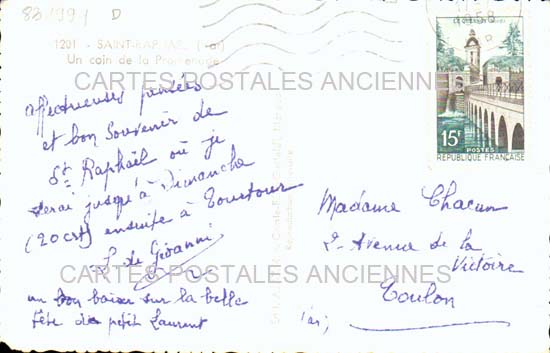 83 1991 D
1201 - SAINT-RAPHAEL (Var)
Un coin de la Promenade
CARTES POSTALES ANCIENNES
LE QUESNOY
15F
POSTES
REPUBLIQUE FRANÇAISE
affectueuses pensées
et bon souvenir de
St Raphaël où je
serai jusqu'à Dimanche
(20 crt) ensuite à Tourtour
L de Giovanni
un bon baiser sur la belle
tête du petit Laurent
Madame Chacun
2 - Avenue de la
Victoire
Toulon
(Var)
CARTES POSTALES ANCIENNES